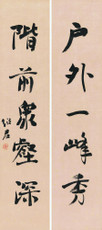 户外一峰秀
階前衆壑深